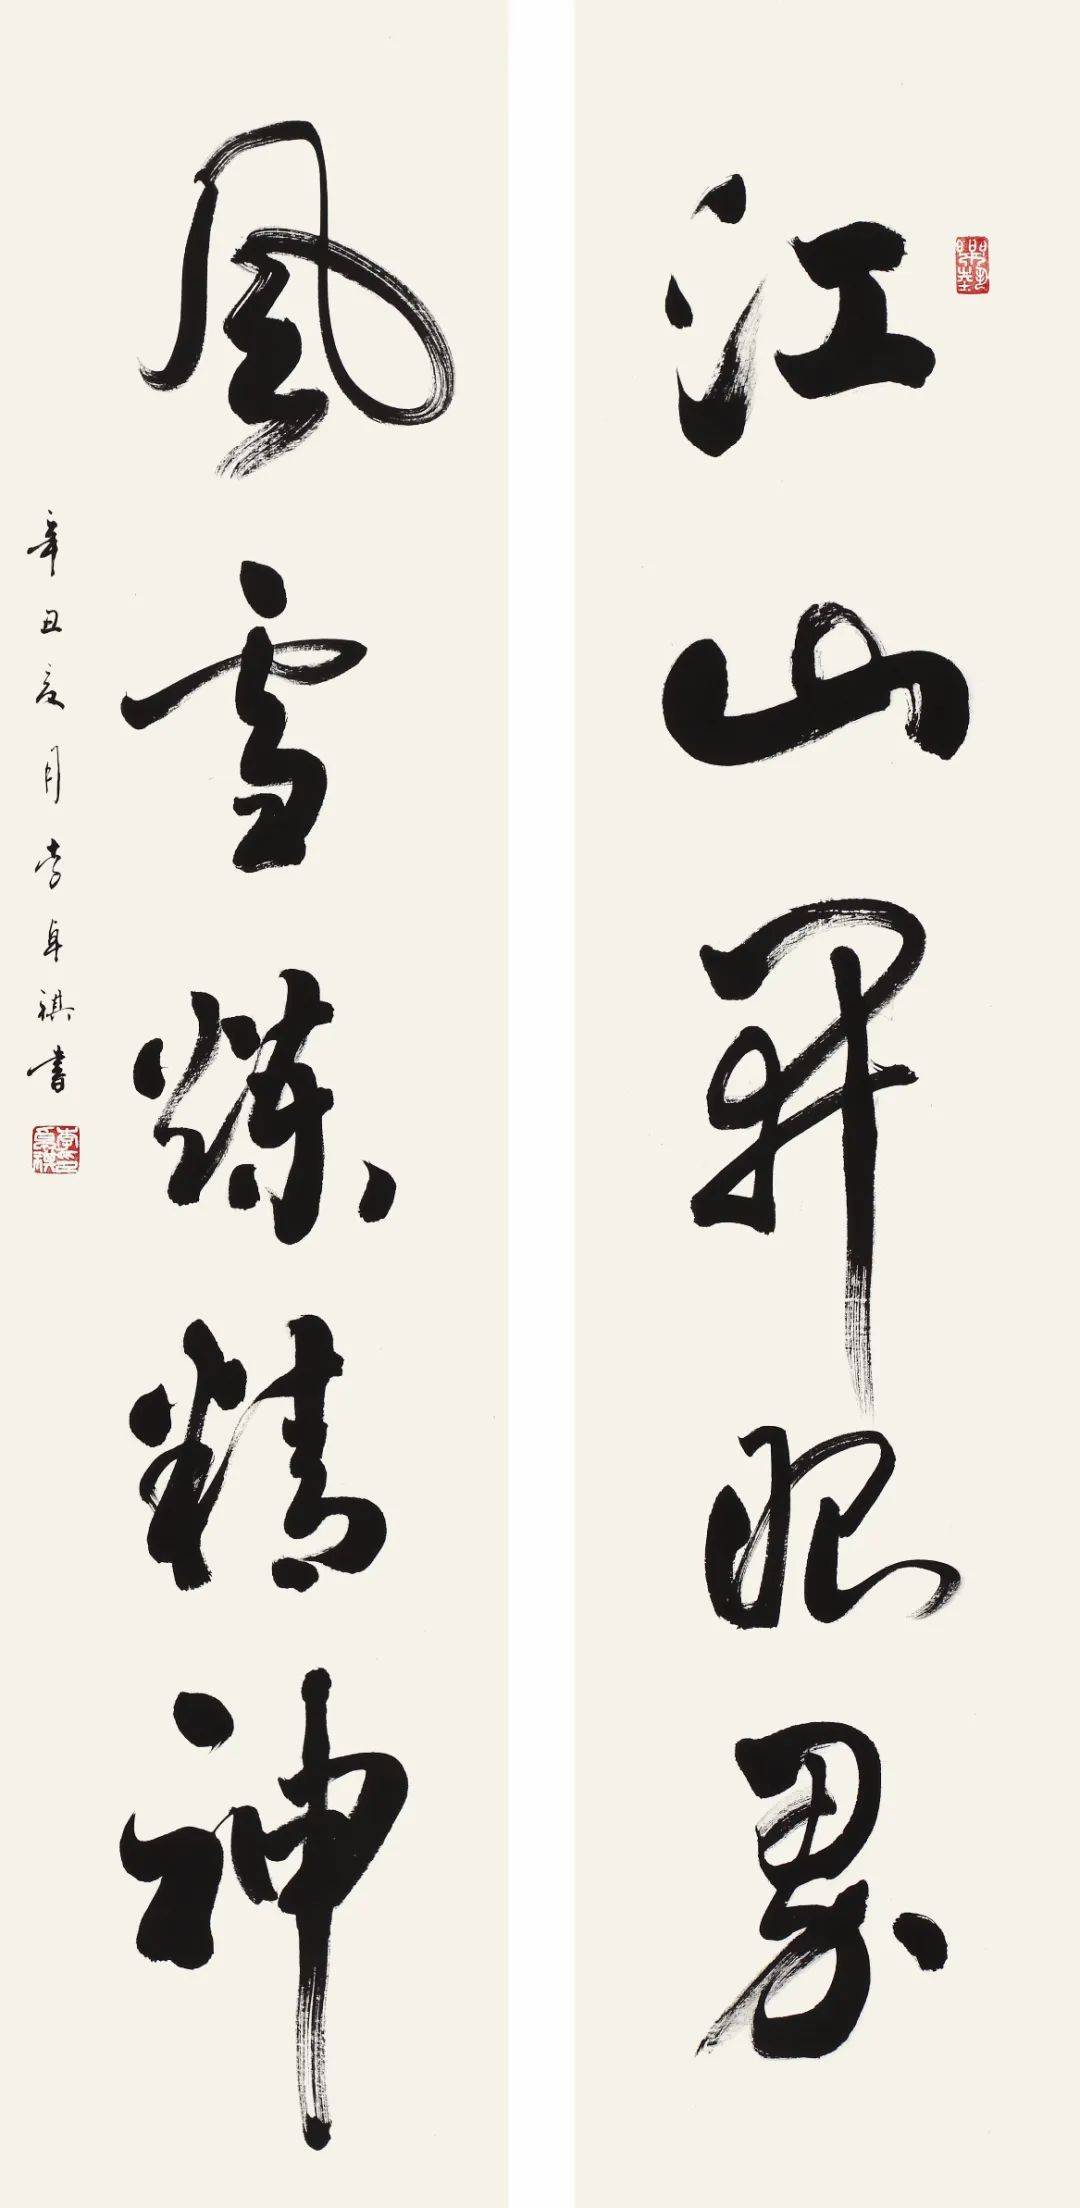 江山開眼界
風雪煉精神
辛丑夏月李卓祺書